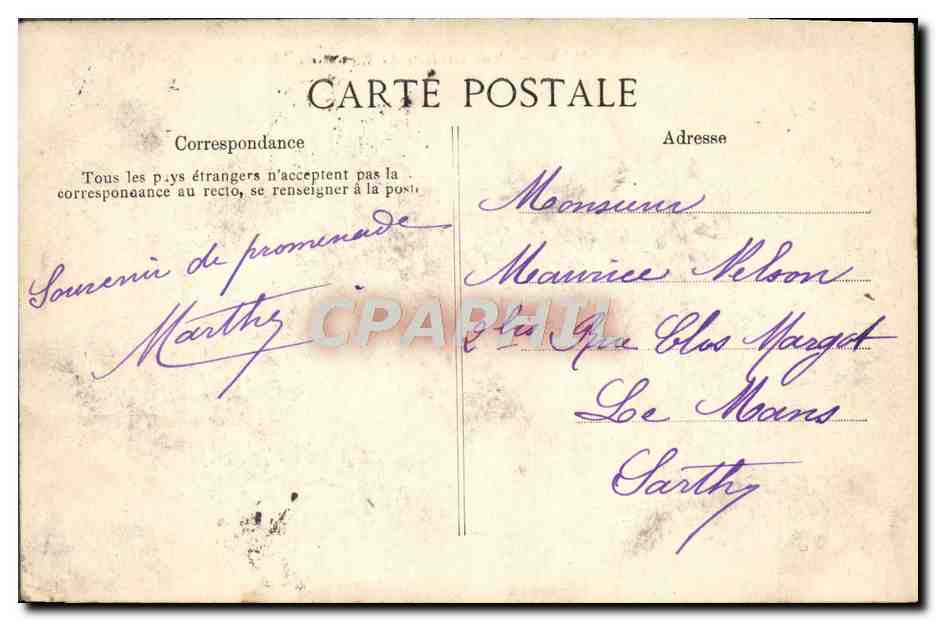 CARTE POSTALE
Correspondance
Tous les pays étrangers n'acceptent pas la
correspondance au recto, se renseigner à la poste
Souvenir de promenade
Marthe
Adresse
Monsieur
Maurice Nelson
2 bis Rue Clos Margot
Le Mans
Sarthe
CPAPHIL